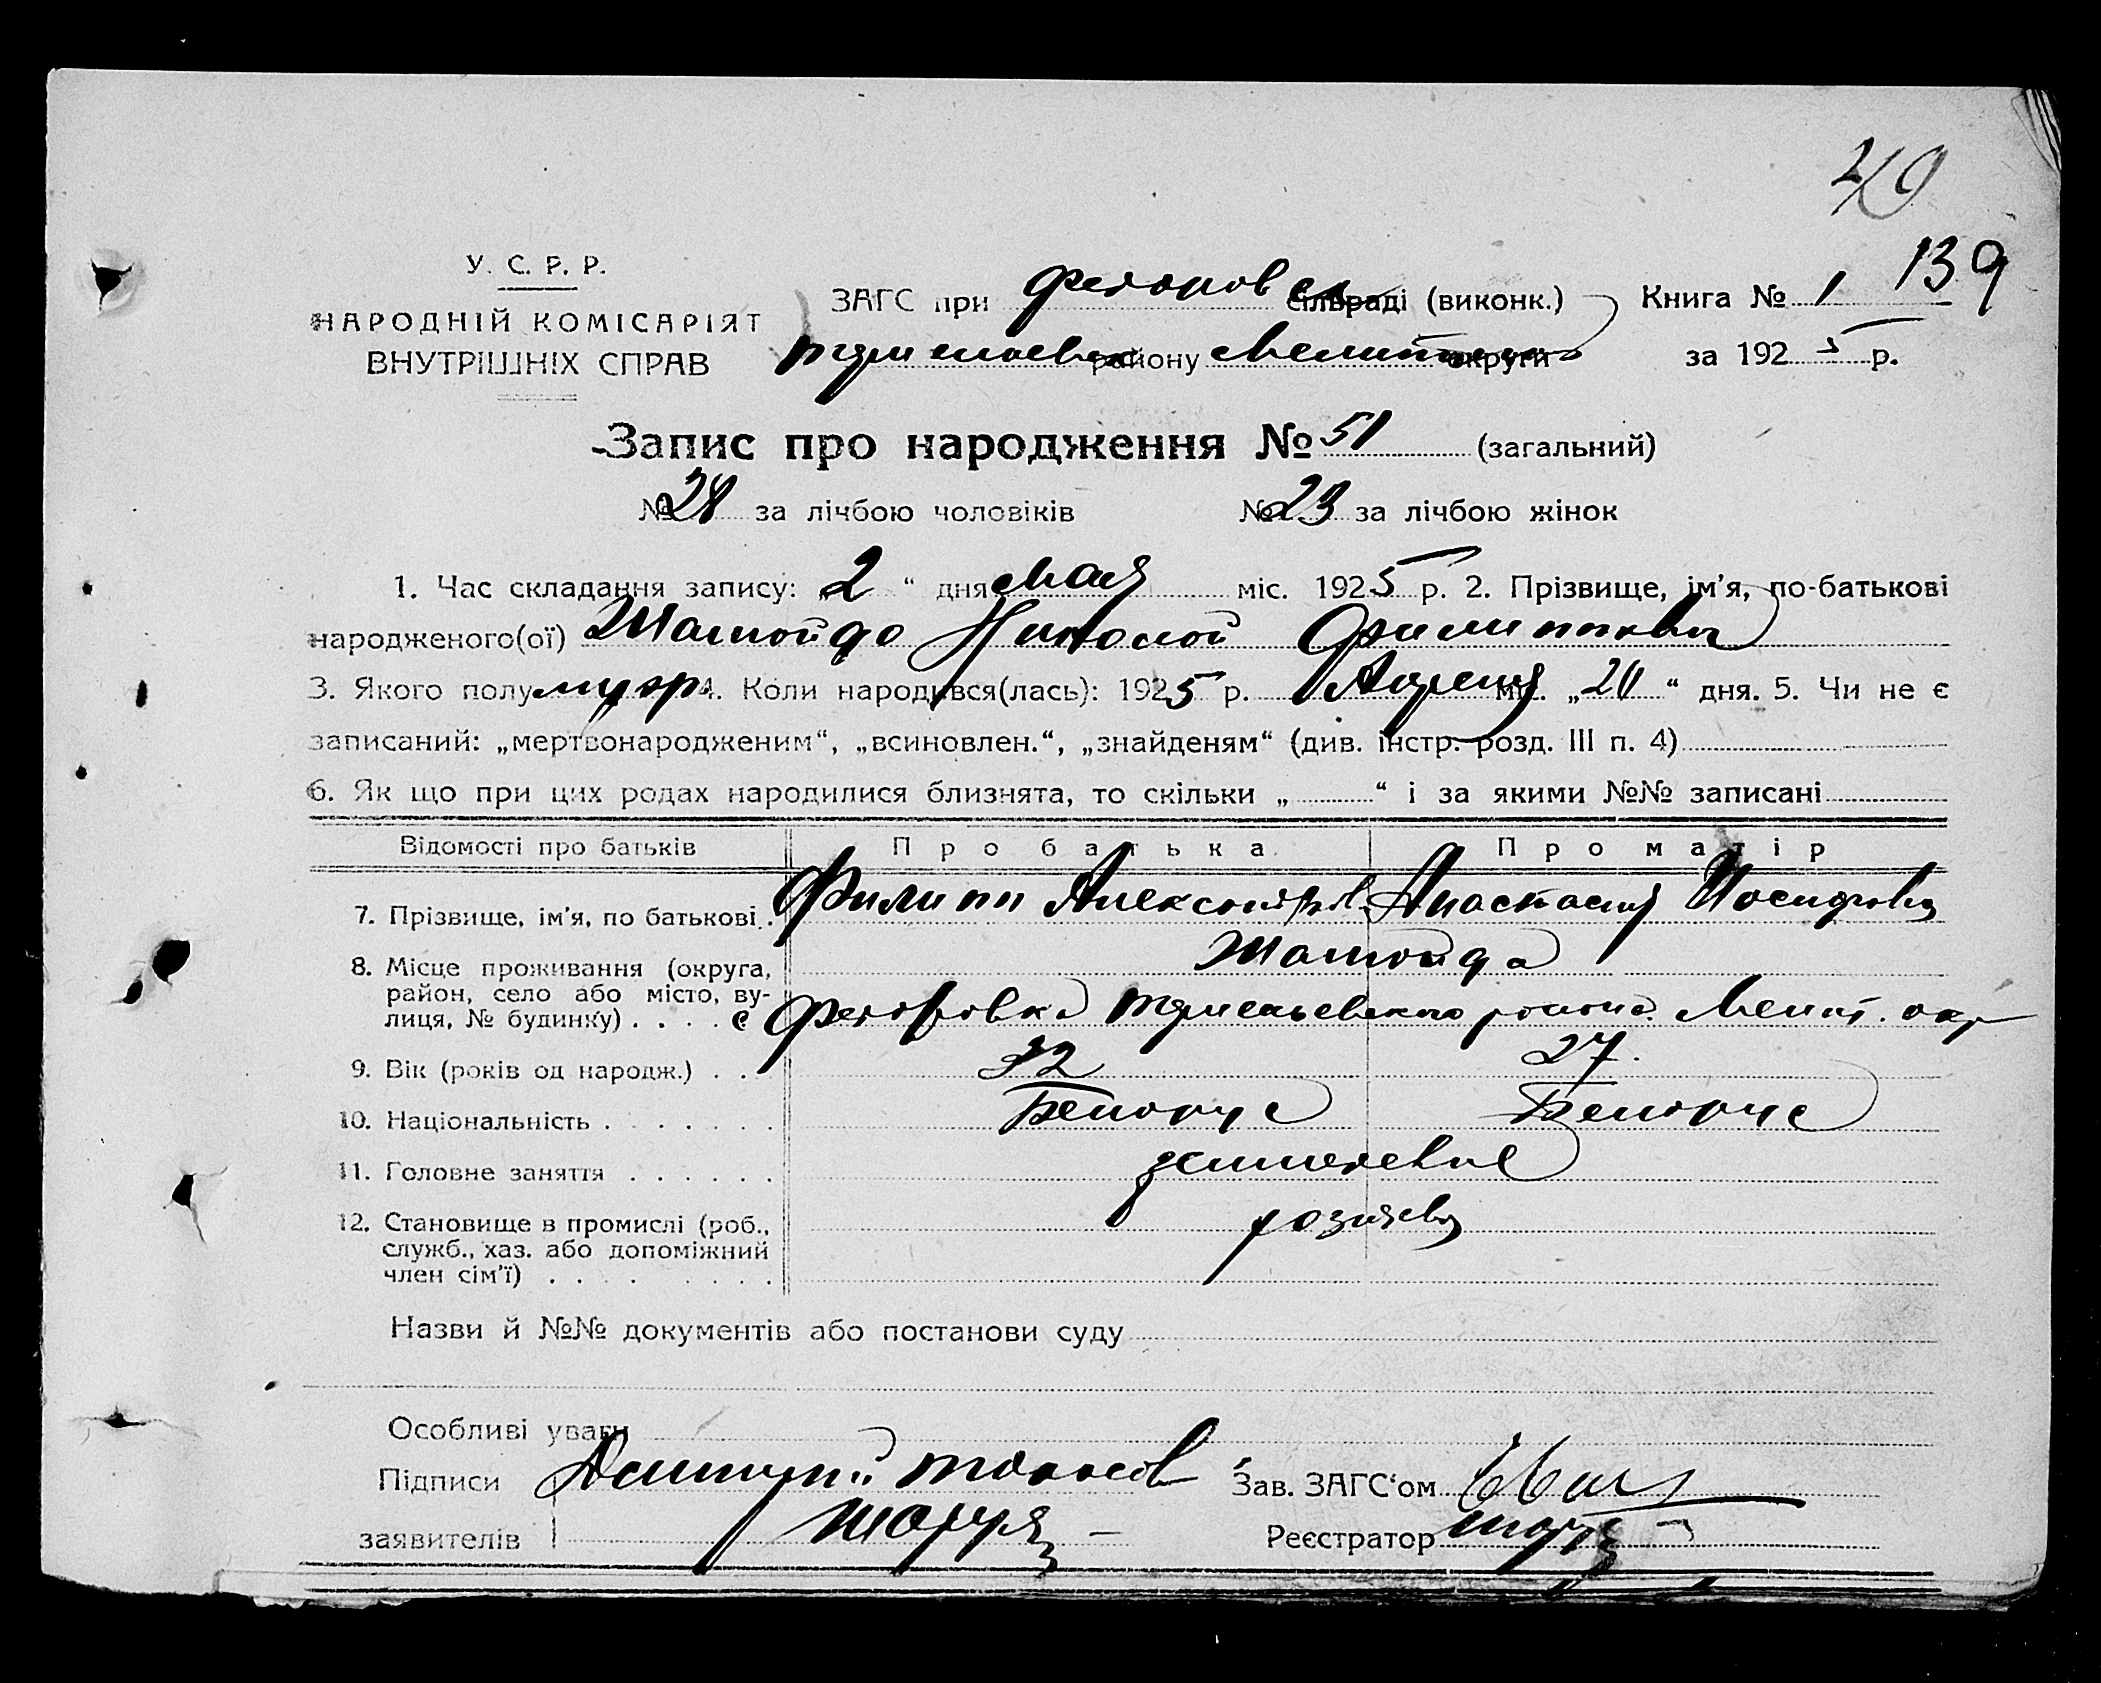 40
139
У. С. Р. Р.
НАРОДНІЙ КОМІСАРІЯТ
ВНУТРІШНІХ СПРАВ
ЗАГС при Федоров сільраді (виконк.) Книга № 1
району округи за 1925 р.
Запис про народження № 51 (загальний)
№ 28 за лічбою чоловіків № 23 за лічбою жінок
1. Час складання запису: „2“ дня мая міс. 1925 р. 2. Прізвище, ім'я, по-батькові
народженого(ої) Николой Филиппович
3. Якого полу муж 4. Коли народився(лась): 1925 р. Апреля міс. „20“ дня. 5. Чи не є
записаний: „мертвонародженим“, „всиновлен.“, „знайденям“ (див. інстр. розд. III п. 4)
6. Як що при цих родах народилися близнята, то скільки „ “ і за якими №№ записані
Відомості про батьків Про батька Про матір
7. Прізвище, ім'я, по батькові. Филипп Александров Анастасия Иосифовна
8. Місце проживання (округа,
район, село або місто, ву-
лиця, № будинку) . . . . с Федоровка района Мелит. окр
9. Вік (років од народж.) . . . 32 27.
10. Національність . . . . . . . Белорус Белорус
11. Головне заняття . . . . . . земледелие
12. Становище в промислі (роб., хозяева
служб., хаз. або допоміжний
член сім'ї) . . . . . . . .
Назви й №№ документів або постанови суду
Особливі уваги
Підписи Зав. ЗАГС‘ом
заявителів Реєстратор